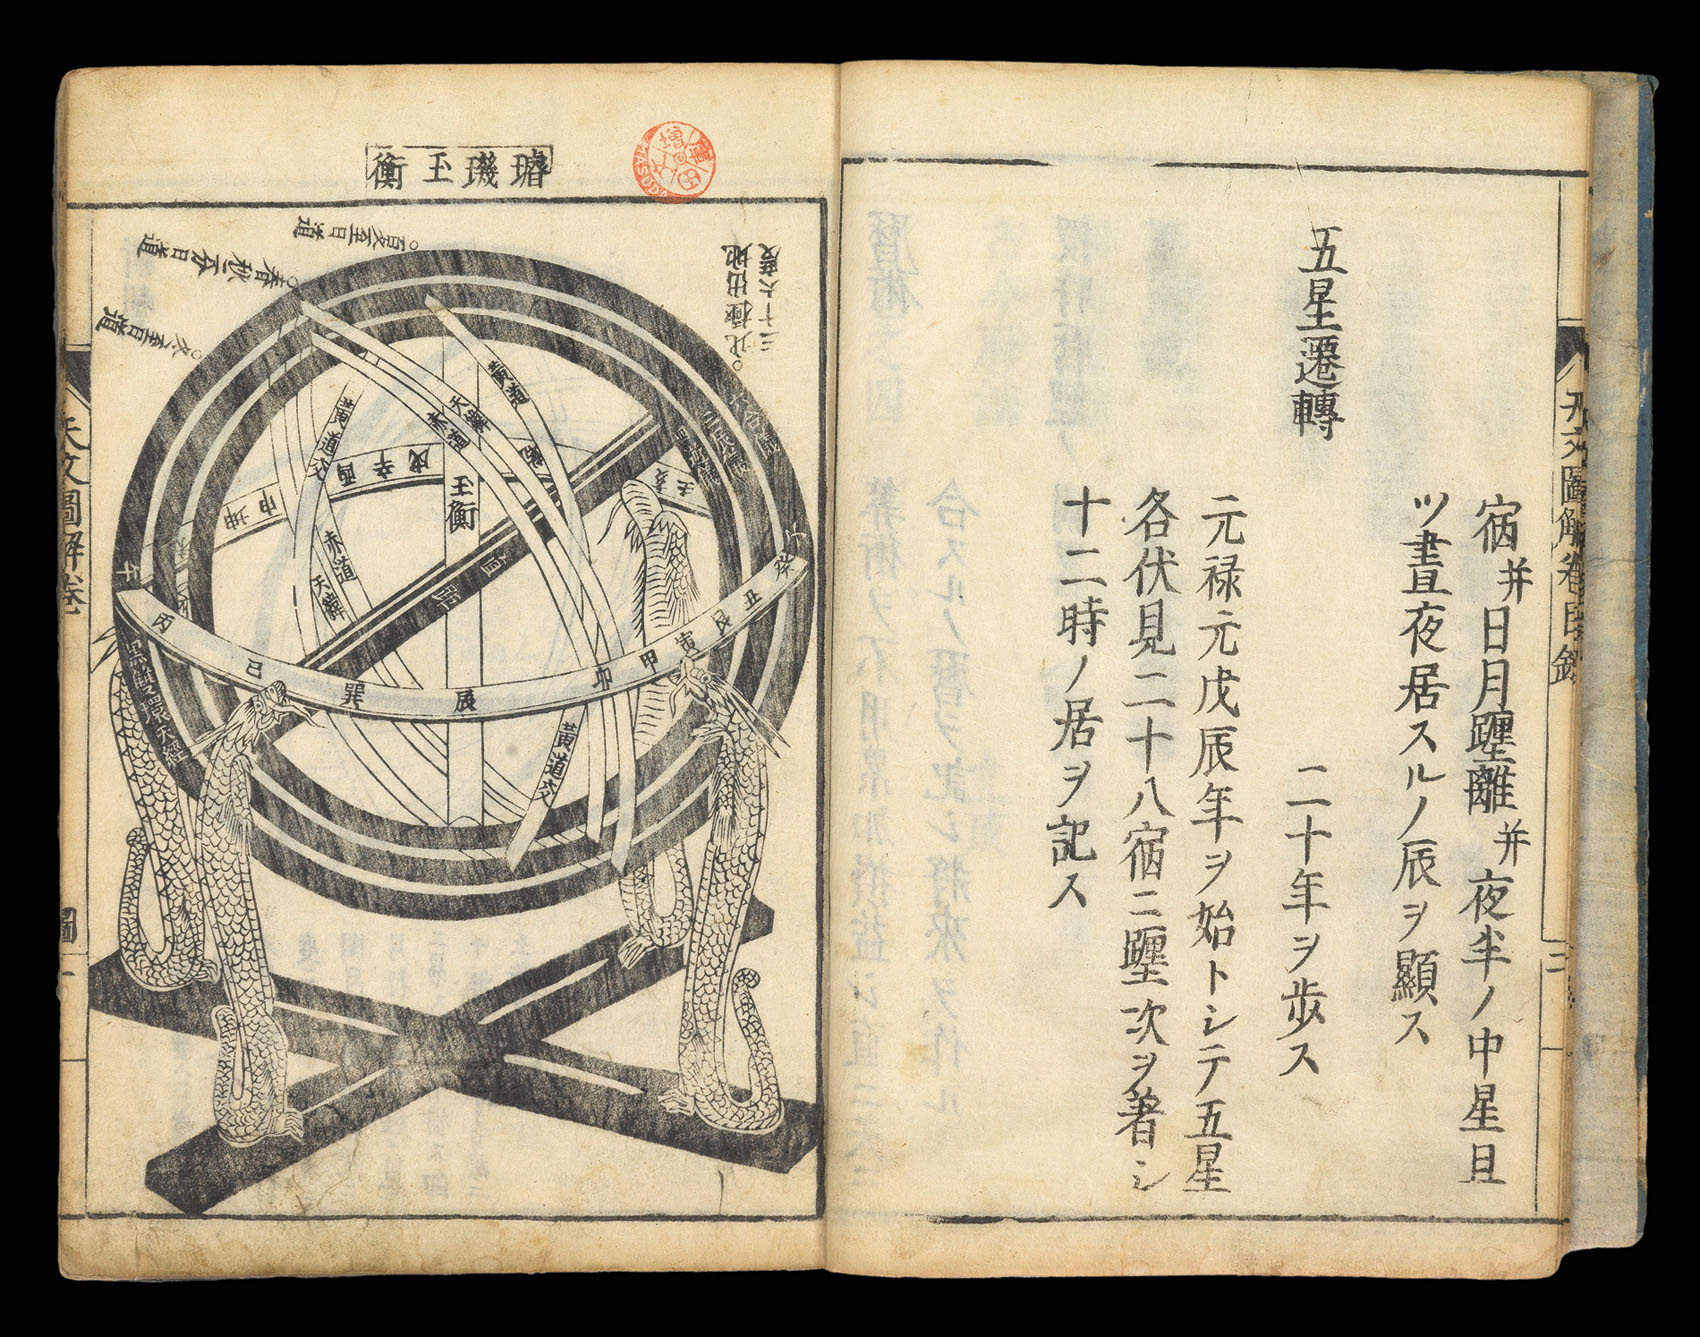 宿并日月躔離并夜半ノ中星且
ツ晝夜居スルノ辰ヲ顯ス
五星遷轉
二十年ヲ歩ス
元禄元戊辰年ヲ始トシテ五星
各伏見二十八宿ニ躔次ヲ著シ
十二時ノ居ヲ記ス
天文圖解卷目録
三
璿璣玉衡
増田
MASUDA
北極出地
三十六度
夏至日道
春秋分日道
冬至日道
六合儀
三辰儀
四遊儀
黄道
天緯
赤道
黄道
玉衡
赤道
天緯
黄道
黒雙環天經
壬亥
戌辛酉
申坤
午
丙
巳
巽
辰
卯
甲
寅
艮
丑
癸
子
天文圖解卷
圖
一